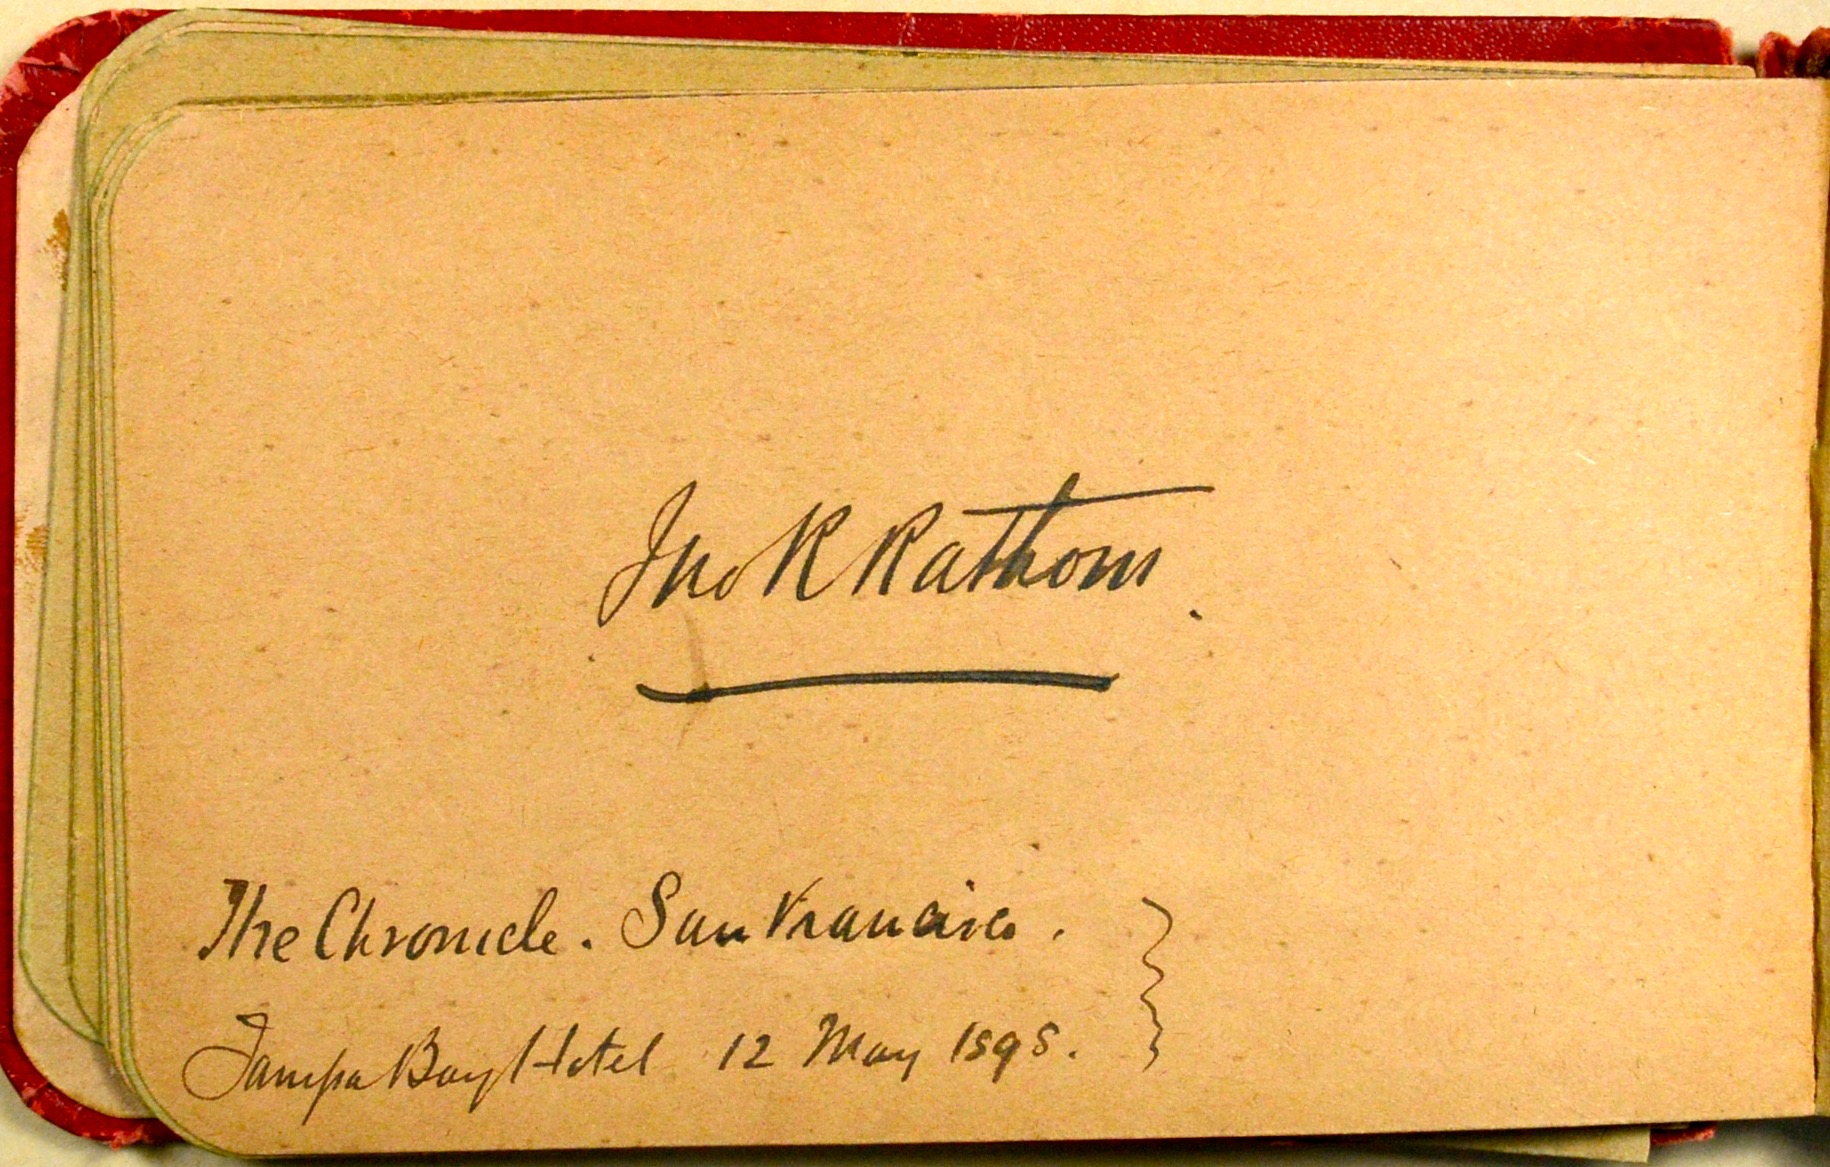 Jno R Rathom.
The Chronicle. San Francisco.
Tampa Bay Hotel 12 May 1898.